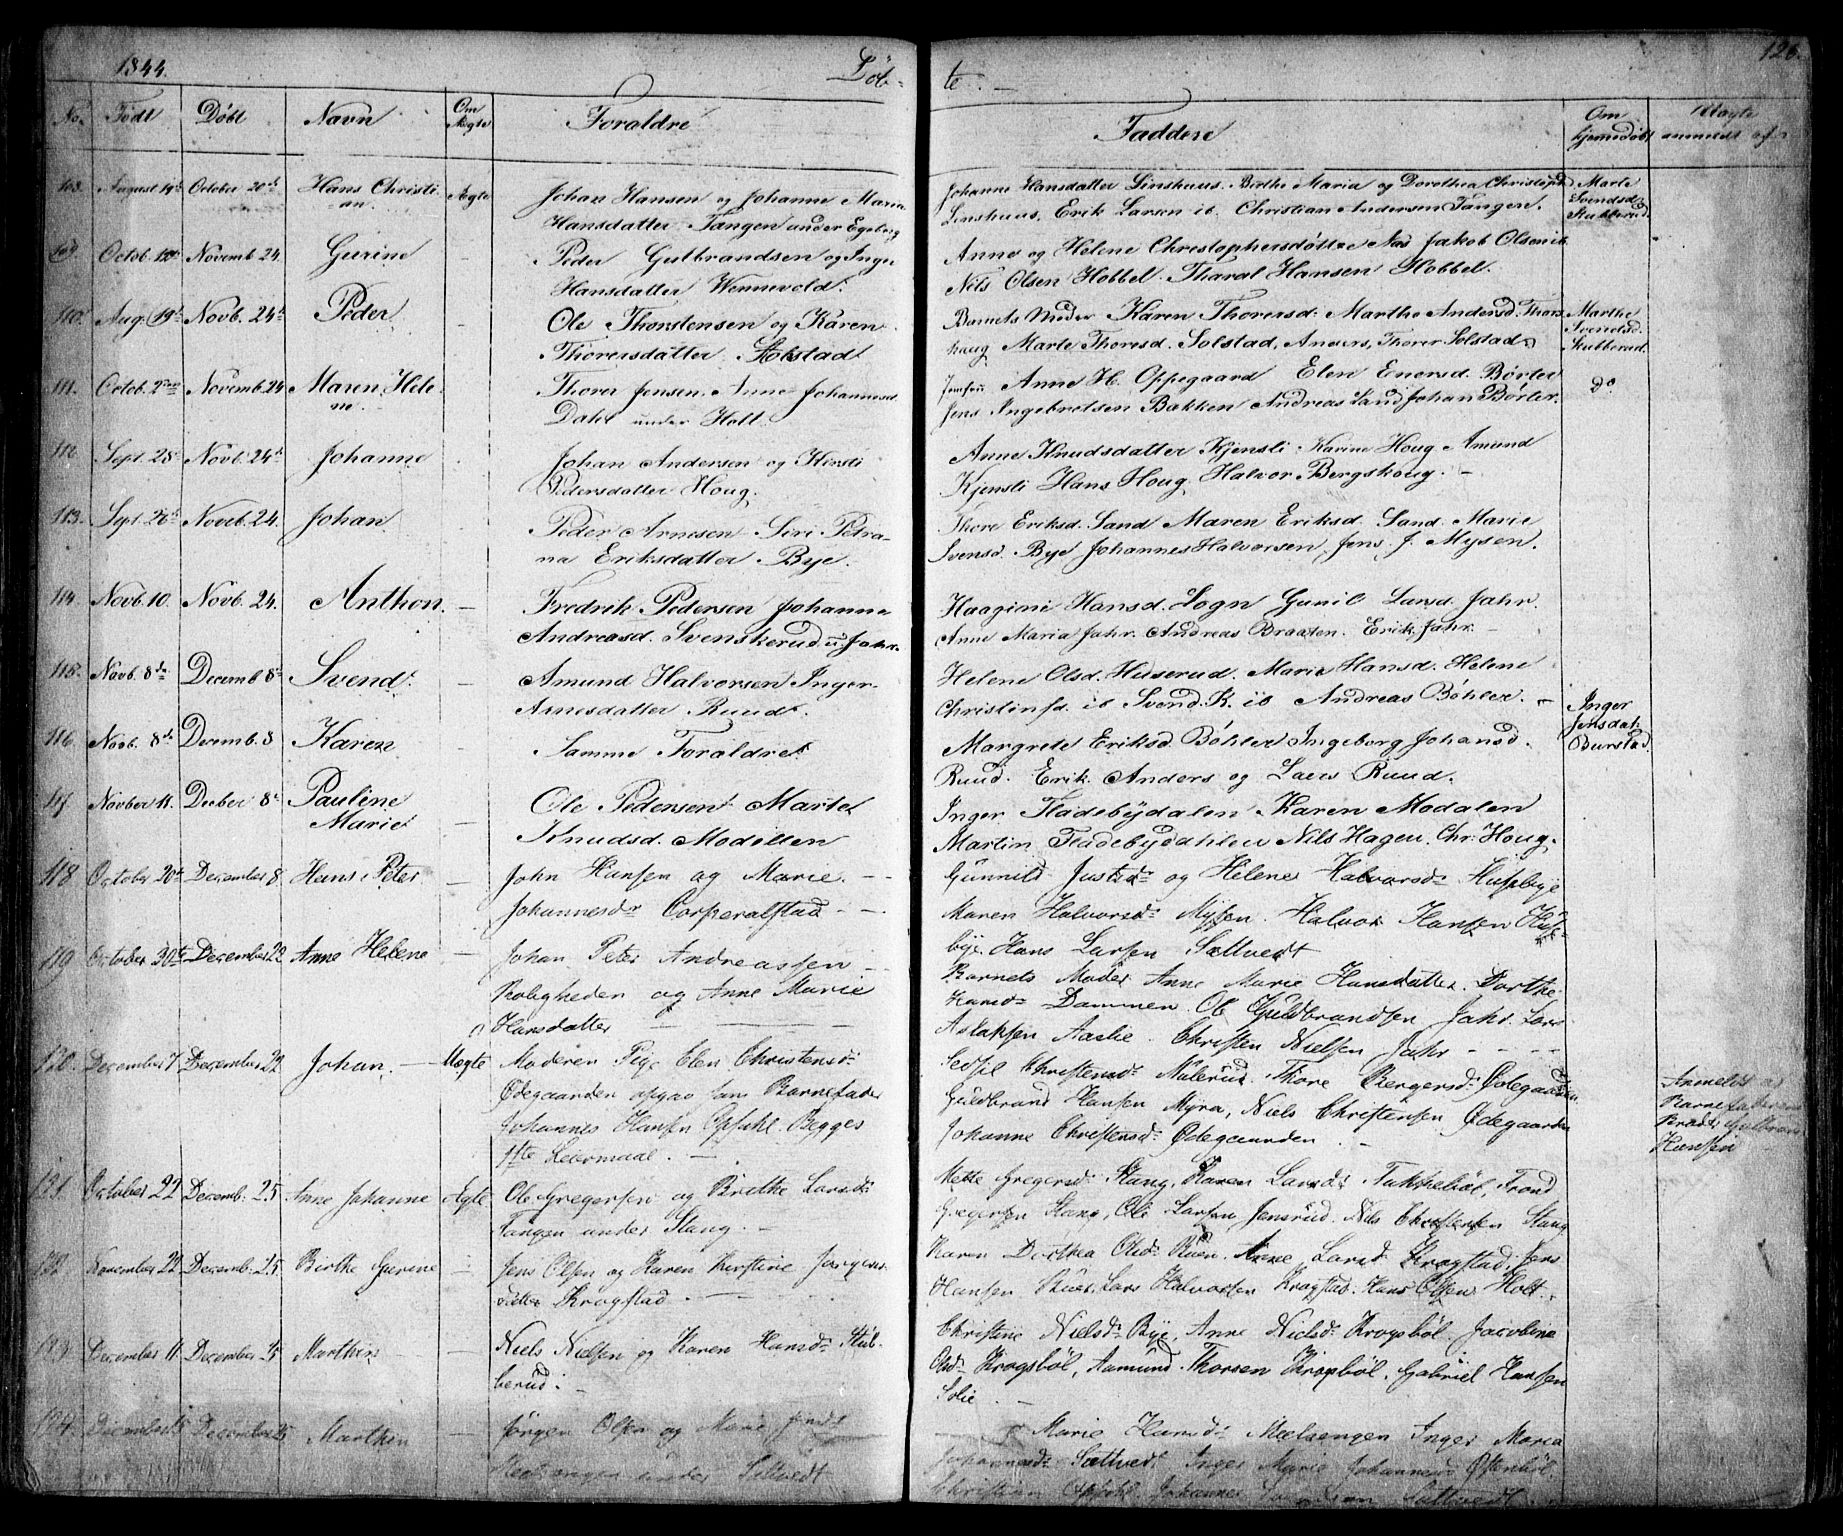 1844. Döb- te. 126.
No. Födt Döbt Navn Om Ægte Foraldre Faddere Om hjemdöbt Uægte anmeldt af
August 14de October 20de Hans Christi- Ægte Johan Hansen og Johanne Maria Johanne Hansdatter Linshuus. Birthe Maria og Dorothea Christoph. Marte
an. Hansdatter Tangen under Egeberg Linshuus, Erik Larsen ib. Christian Andersen Tangen. Svendsd. Stubberud
Octob. Novemb. 24. Gurine - Peder Gulbrandsen og Inger Anne og Helene Christophersdøttre Næs Jakob Olsen ib.
Hansdatter Wennevold. Nils Olsen Hobbel. Tharal Hansen Hobbel.
110. Aug. 19de Novb. 24de Peder - Ole Thorstensen og Karen Barnets Moder Karen Thorersd. Marthe Andersd. Thors- Marthe
Thorersdatter Solstad haug Marte Thoresd. Solstad, Anders, Thorer Solstad. Svendsd. Stubberud.
111. Octob. 2den Novemb. 24 Maren Hele- - Thorer Jensen. Anne Johannesd. Anne H. Oppegaard Elen Enersd. Børter do
ne. Dahl under Holt. Jens Ingebretsen Bakken Andreas Sand Johan Børter.
112 Sept. 28 Novb. 24de Johanne - Johan Andersen og Kirsti Anne Knudsdatter Kjensli. Karine Houg Amund
Pedersdatter Houg. Kjensli Hans Houg, Halvor Bergskoug. -
113. Sept. 26de Novb. 24. Johan - Peder Arnesen Siri Petra- Thore Eriksd. Sand Maren Eriksd. Sand. Marie
na Eriksdatter Bye. Svensd. Bye Johannes Halvorsen, Jens J. Mysen.
114. Novb. 10. Novb. 24. Anthon. - Fredrik Pedersen Johanne Haagine Hansd. Sogn Gunil Larsd. Jahr.
Andreasd. Svenskerud u. Jahr. Anne Maria Jahr. Andreas Braaten. Erik Jahr. -
115. Novb. 8de Decemb. 8de Svend. - Amund Halvorsen Inger Helene Olsd. Huserud. Maria Hansd. Helene
Arnesdatter Ruud. Christinsd. ib Svend. K. ib Andreas Bøhler. - Inger
116 Novb. 8de Decemb. 8 Karen - Samme Foraldre Margrete Eriksd. Bøhler Ingeborg Johansd. Jensdat. Burstad.
Ruud. Erik. Anders og Laers Ruud.
117 Novber 11. Decber 8de Pauline Ole Pedersen Marte Inger Fladebydalen Karen Modalen
Marie - Knudsd. Modellen Martin Fladebydahlen Nils Hagen. Chr. Houg.
118 October 20de December 8 Hans Peter - John Hansen og Marie. - - Gunnild Justsdr og Helene Halvorsdr Husebye
Johannesdr Corporalstad. - - Maren Halvorsdr Mysen. Halvor Hansen Huse-
bye. Hans Larsen Sætvedt
119 October 30te December 22 Anne Helene - Johan Peter Andreassen - - Barnets Moder Anne Marie Hansdatter. Dorthe
Roligheden og Anne Marie Hansdr Dammen. Ole Guldbrandsen Jahr. Lars
Hansdatter - - - Aslaksen Aaslie. Christen Nielsen Jahr - - -
120. December 7 December 22 Johan. - Uægte Moderen Pige Elen Christensdr Sedsil Christensdr Mulerud. Thore Bergersdr Ødegaarden Anmeldt af
Ødegaarden opgav som Barnefader Guldbrand Hansen Myra, Niels Christensen Ødegaarden Barnefaderens
Johannes Hansen Opsahl. Begges Johanne Christensdr Ødegaarden. - Broder Gulbran
1ste Leiermaal. - Hansen
121. October 22 Decemb. 25 Anne Johanne Ægte Ole Gregersen og Birthe Larsdr Mette Gregersdr Stang, Karen Larsdr Tukkebøl, Trond
Tangen under Stang. - Gregersen Stang, Ole Larsen Jensrud. Nils Christensen Stang
122. November 22 Decemb. 25 Birthe Gurine - Jens Olsen og Karen Kirstine Jørgens Karen Dorthea Olsdr Ruen. Anne Larsdr Krogstad, Jens
datter Krogstad. - - Hansen Lars Halvorsen Krogstad. Hans Olsen Holt.
123. December 11 December 25 Marthin - Niels Nielsen og Karen Hansdr Stub- Christine Nielsdr Bye, Anne Nielsdr Krogsbøl. Jacobine
berud. - Olsdr Krogsbøl, Aamund Thorsen Krogsbøl. Gabriel Hansen
Solie. -
124. December December 25 Marthin - Jørgen Olsen og Marie Marie Hansdr Mielsengen Inger Maria
under Sætvedt Johannesdr Sætvedt Inger Marie Johannesdr Østenbøl
Christian Opsahl. Johannes Sætvedt